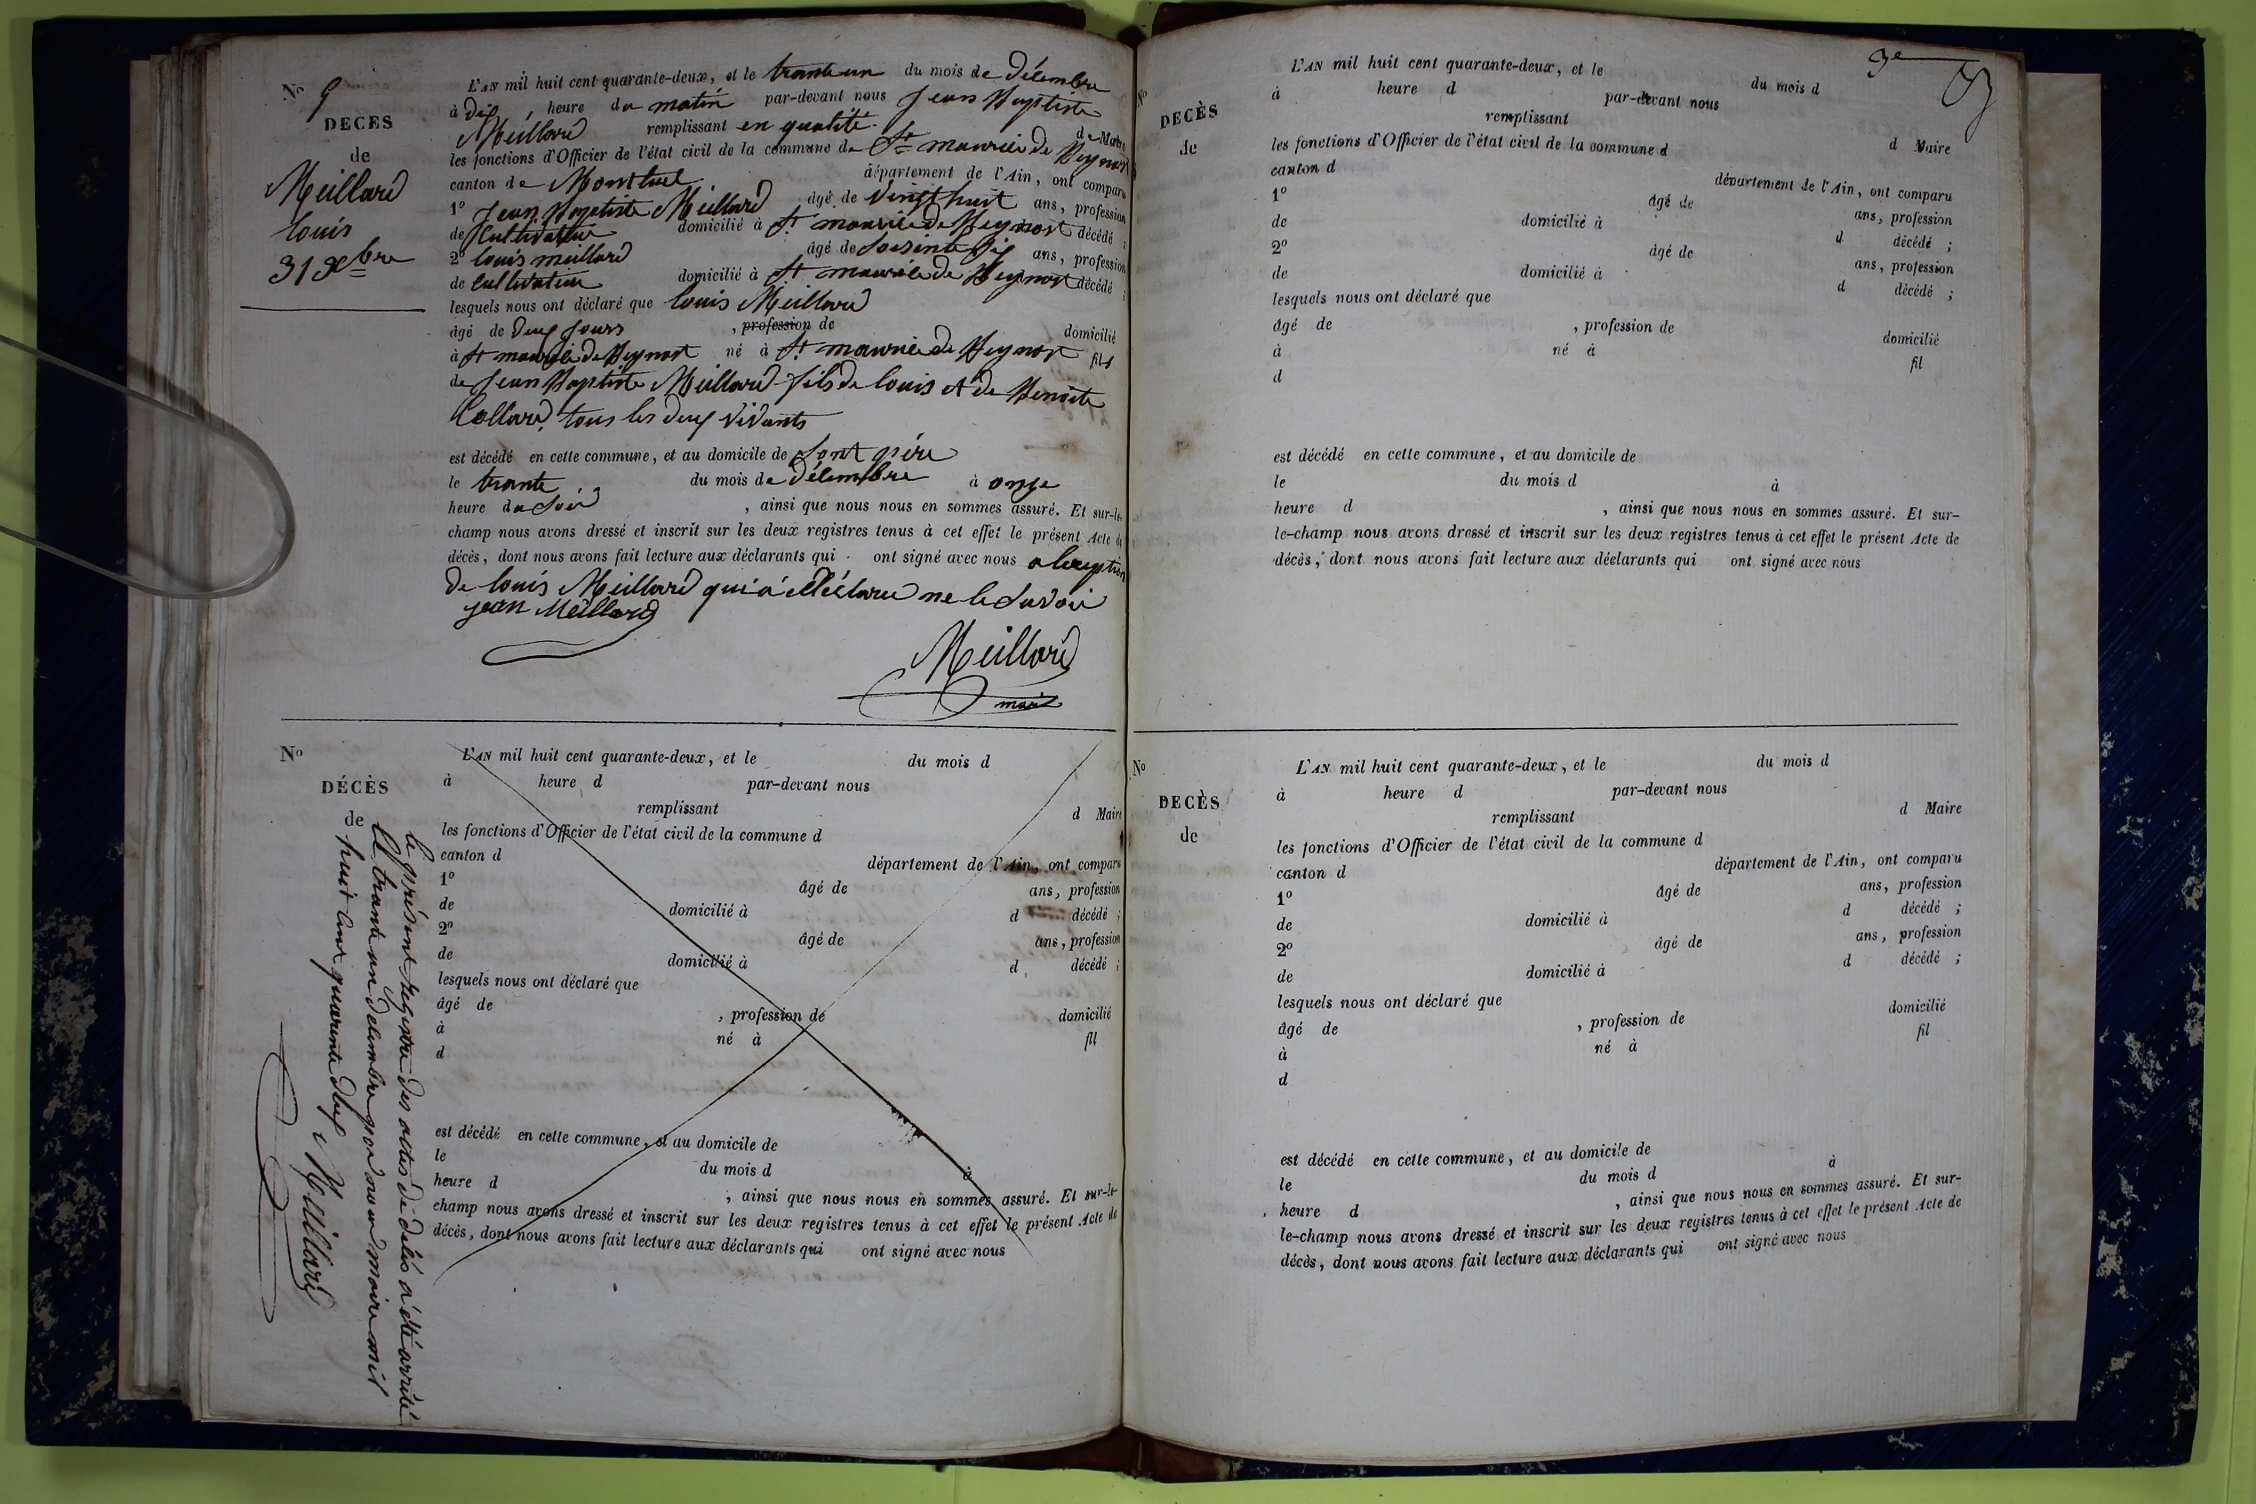 Nº 9
DECES
de
Meillard
louis
31 Xbre
L'AN mil huit cent quarante-deux, et le trante un du mois de décembre
à dix, heure du matin par-devant nous Jean Baptiste
Meillard remplissant en qualité de Maire
les fonctions d'Officier de l'état civil de la commune de St maurice de Beynost
canton de Montluel département de l'Ain, ont comparu
1º Jean Baptiste Meillard âgé de vingt huit ans, profession
de Cultivateur domicilié à St maurice de Beynost décédé ;
2º louis meillard âgé de soesinte dix ans, profession
de Cultivateur domicilié à St maurice de Beynost décédé ;
lesquels nous ont déclaré que louis Meillard
âgé de deux jours , profession de domicilié
à St maurice de Beynost né à St maurice de Beynost fils
de Jean Baptiste Meillard fils de louis et de Benoite
Collard, tous les deux vivants
est décédé en cette commune, et au domicile de sont père
le trante du mois de décembre à onze
heure du soir , ainsi que nous nous en sommes assuré. Et sur-le-
champ nous avons dressé et inscrit sur les deux registres tenus à cet effet le présent Acte de
décès, dont nous avons fait lecture aux déclarants qui ont signé avec nous a lexeption
de louis Meillard qui a déclaré ne le savoir
jean Meillard
Meillard
maire
Nº
DÉCÈS
de
L'AN mil huit cent quarante-deux, et le du mois d
à heure d par-devant nous
remplissant d Maire
les fonctions d'Officier de l'état civil de la commune d
canton d département de l'Ain, ont comparu
1º âgé de ans, profession
de domicilié à d décédé ;
2º âgé de ans, profession
de domicilié à d décédé ;
lesquels nous ont déclaré que
âgé de , profession de domicilié
à né à fil
d
est décédé en cette commune, et au domicile de
le du mois d à
heure d , ainsi que nous nous en sommes assuré. Et sur-le-
champ nous avons dressé et inscrit sur les deux registres tenus à cet effet le présent Acte de
décès, dont nous avons fait lecture aux déclarants qui ont signé avec nous
le présent registre des actes de décés a été arrêté
le trante un décembre par nous maire mil
huit cent quarante deux Meillard
9e
Nº
DECÈS
de
L'AN mil huit cent quarante-deux, et le du mois d
à heure d par-devant nous
remplissant d Maire
les fonctions d'Officier de l'état civil de la commune d
canton d département de l'Ain, ont comparu
1º âgé de ans, profession
de domicilié à d décédé ;
2º âgé de ans, profession
de domicilié à d décédé ;
lesquels nous ont déclaré que
âgé de , profession de domicilié
à né à fil
d
est décédé en cette commune, et au domicile de
le du mois d à
heure d , ainsi que nous nous en sommes assuré. Et sur-
le-champ nous avons dressé et inscrit sur les deux registres tenus à cet effet le présent Acte de
décès, dont nous avons fait lecture aux déclarants qui ont signé avec nous
Nº
DECÈS
de
L'AN mil huit cent quarante-deux, et le du mois d
à heure d par-devant nous
remplissant d Maire
les fonctions d'Officier de l'état civil de la commune d
canton d département de l'Ain, ont comparu
1º âgé de ans, profession
de domicilié à d décédé ;
2º âgé de ans, profession
de domicilié à d décédé ;
lesquels nous ont déclaré que
âgé de , profession de domicilié
à né à fil
d
est décédé en cette commune, et au domicile de
le du mois d à
heure d , ainsi que nous nous en sommes assuré. Et sur-
le-champ nous avons dressé et inscrit sur les deux registres tenus à cet effet le présent Acte de
décès, dont nous avons fait lecture aux déclarants qui ont signé avec nous